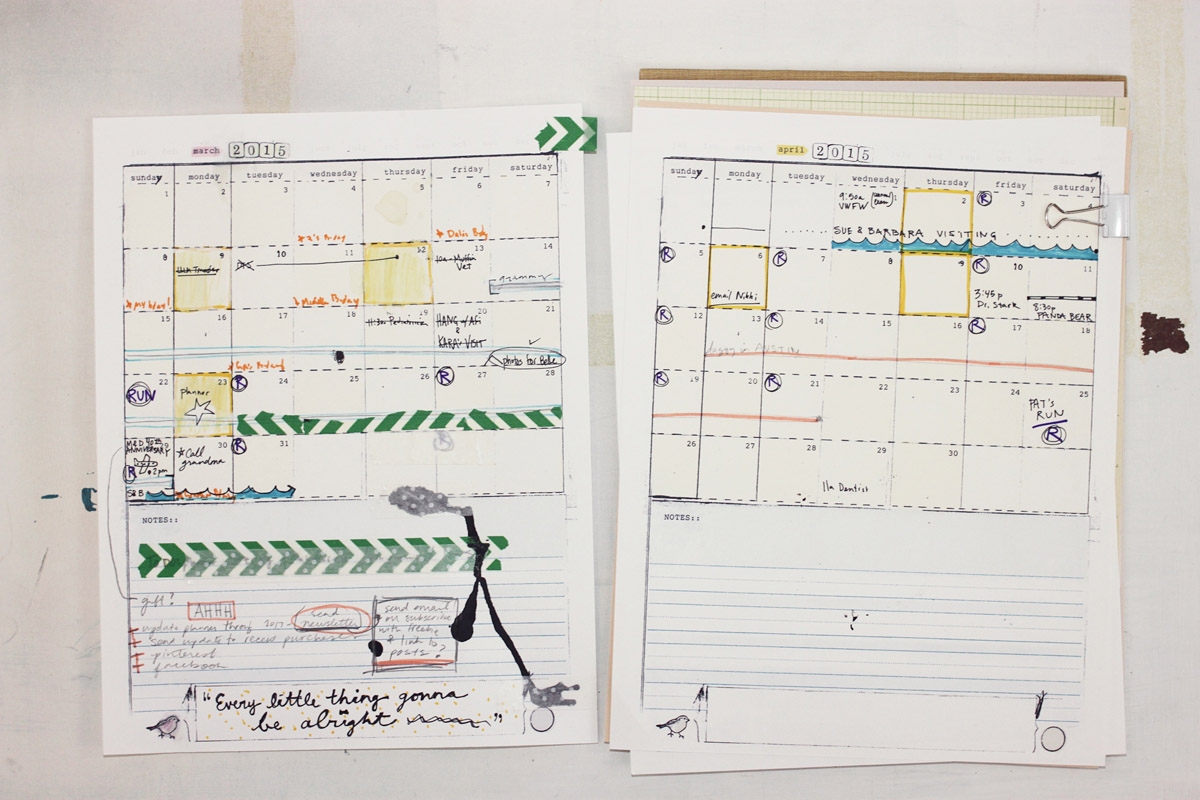 march 2015
sunday monday tuesday wednesday thursday friday saturday
1 2 3 4 5 6 7
8 9 10 11 12 13 14
my bday!
Vet
15 16 17 18 19 20 21
HANG
&
KARA'S VISIT
photos for Belle
22 23 24 25 26 27 28
RUN
planner
R R
29 30 31
M&D 40th
ANNIVERSARY
R 2pm
R
*Call
grandma
S&B
NOTES::
gift?
AHHH
update planner through 2017
send update to recent purchases
pinterest
facebook
send
newsletter
send email
on subscribe
with freebie
& link to
posts?
"Every little thing gonna
be alright"
april 2015
sunday monday tuesday wednesday thursday friday saturday
2 3
9:30a
VWFW
R
SUE & BARBARA VISITING
5 6 7 8 9 10 11
R R R
email Nikki
3:45p
Dr. Stark
8:30p
PANDA BEAR
12 13 14 15 16 17 18
R R R
AUSTIN
19 20 21 22 23 24 25
R R
PAT'S
RUN
R
26 27 28 29 30
11a Dentist
NOTES::